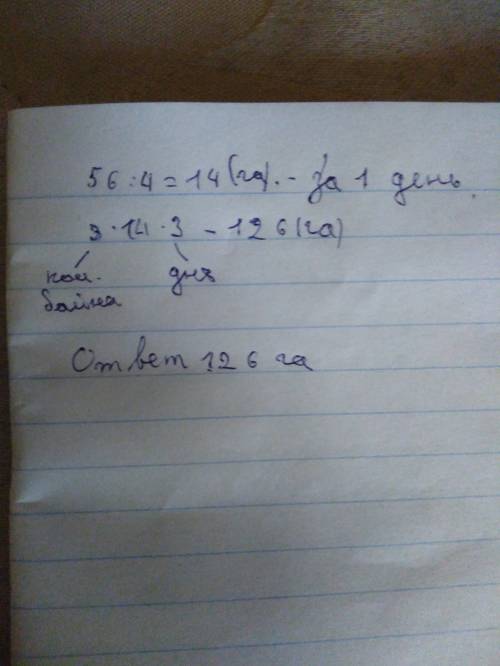 56:4=14(га).- за 1 день.
3·14·3 - 126(га)
ком- дня
байна
Ответ 126 га